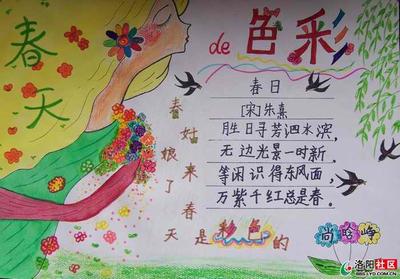 春天
de 色彩
春日
[宋]朱熹
胜日寻芳泗水滨,
无边光景一时新.
等闲识得东风面,
万紫千红总是春.
春姑娘来了春天是彩色的
尚
洛阳社区
BBS.LYD.COM.CN